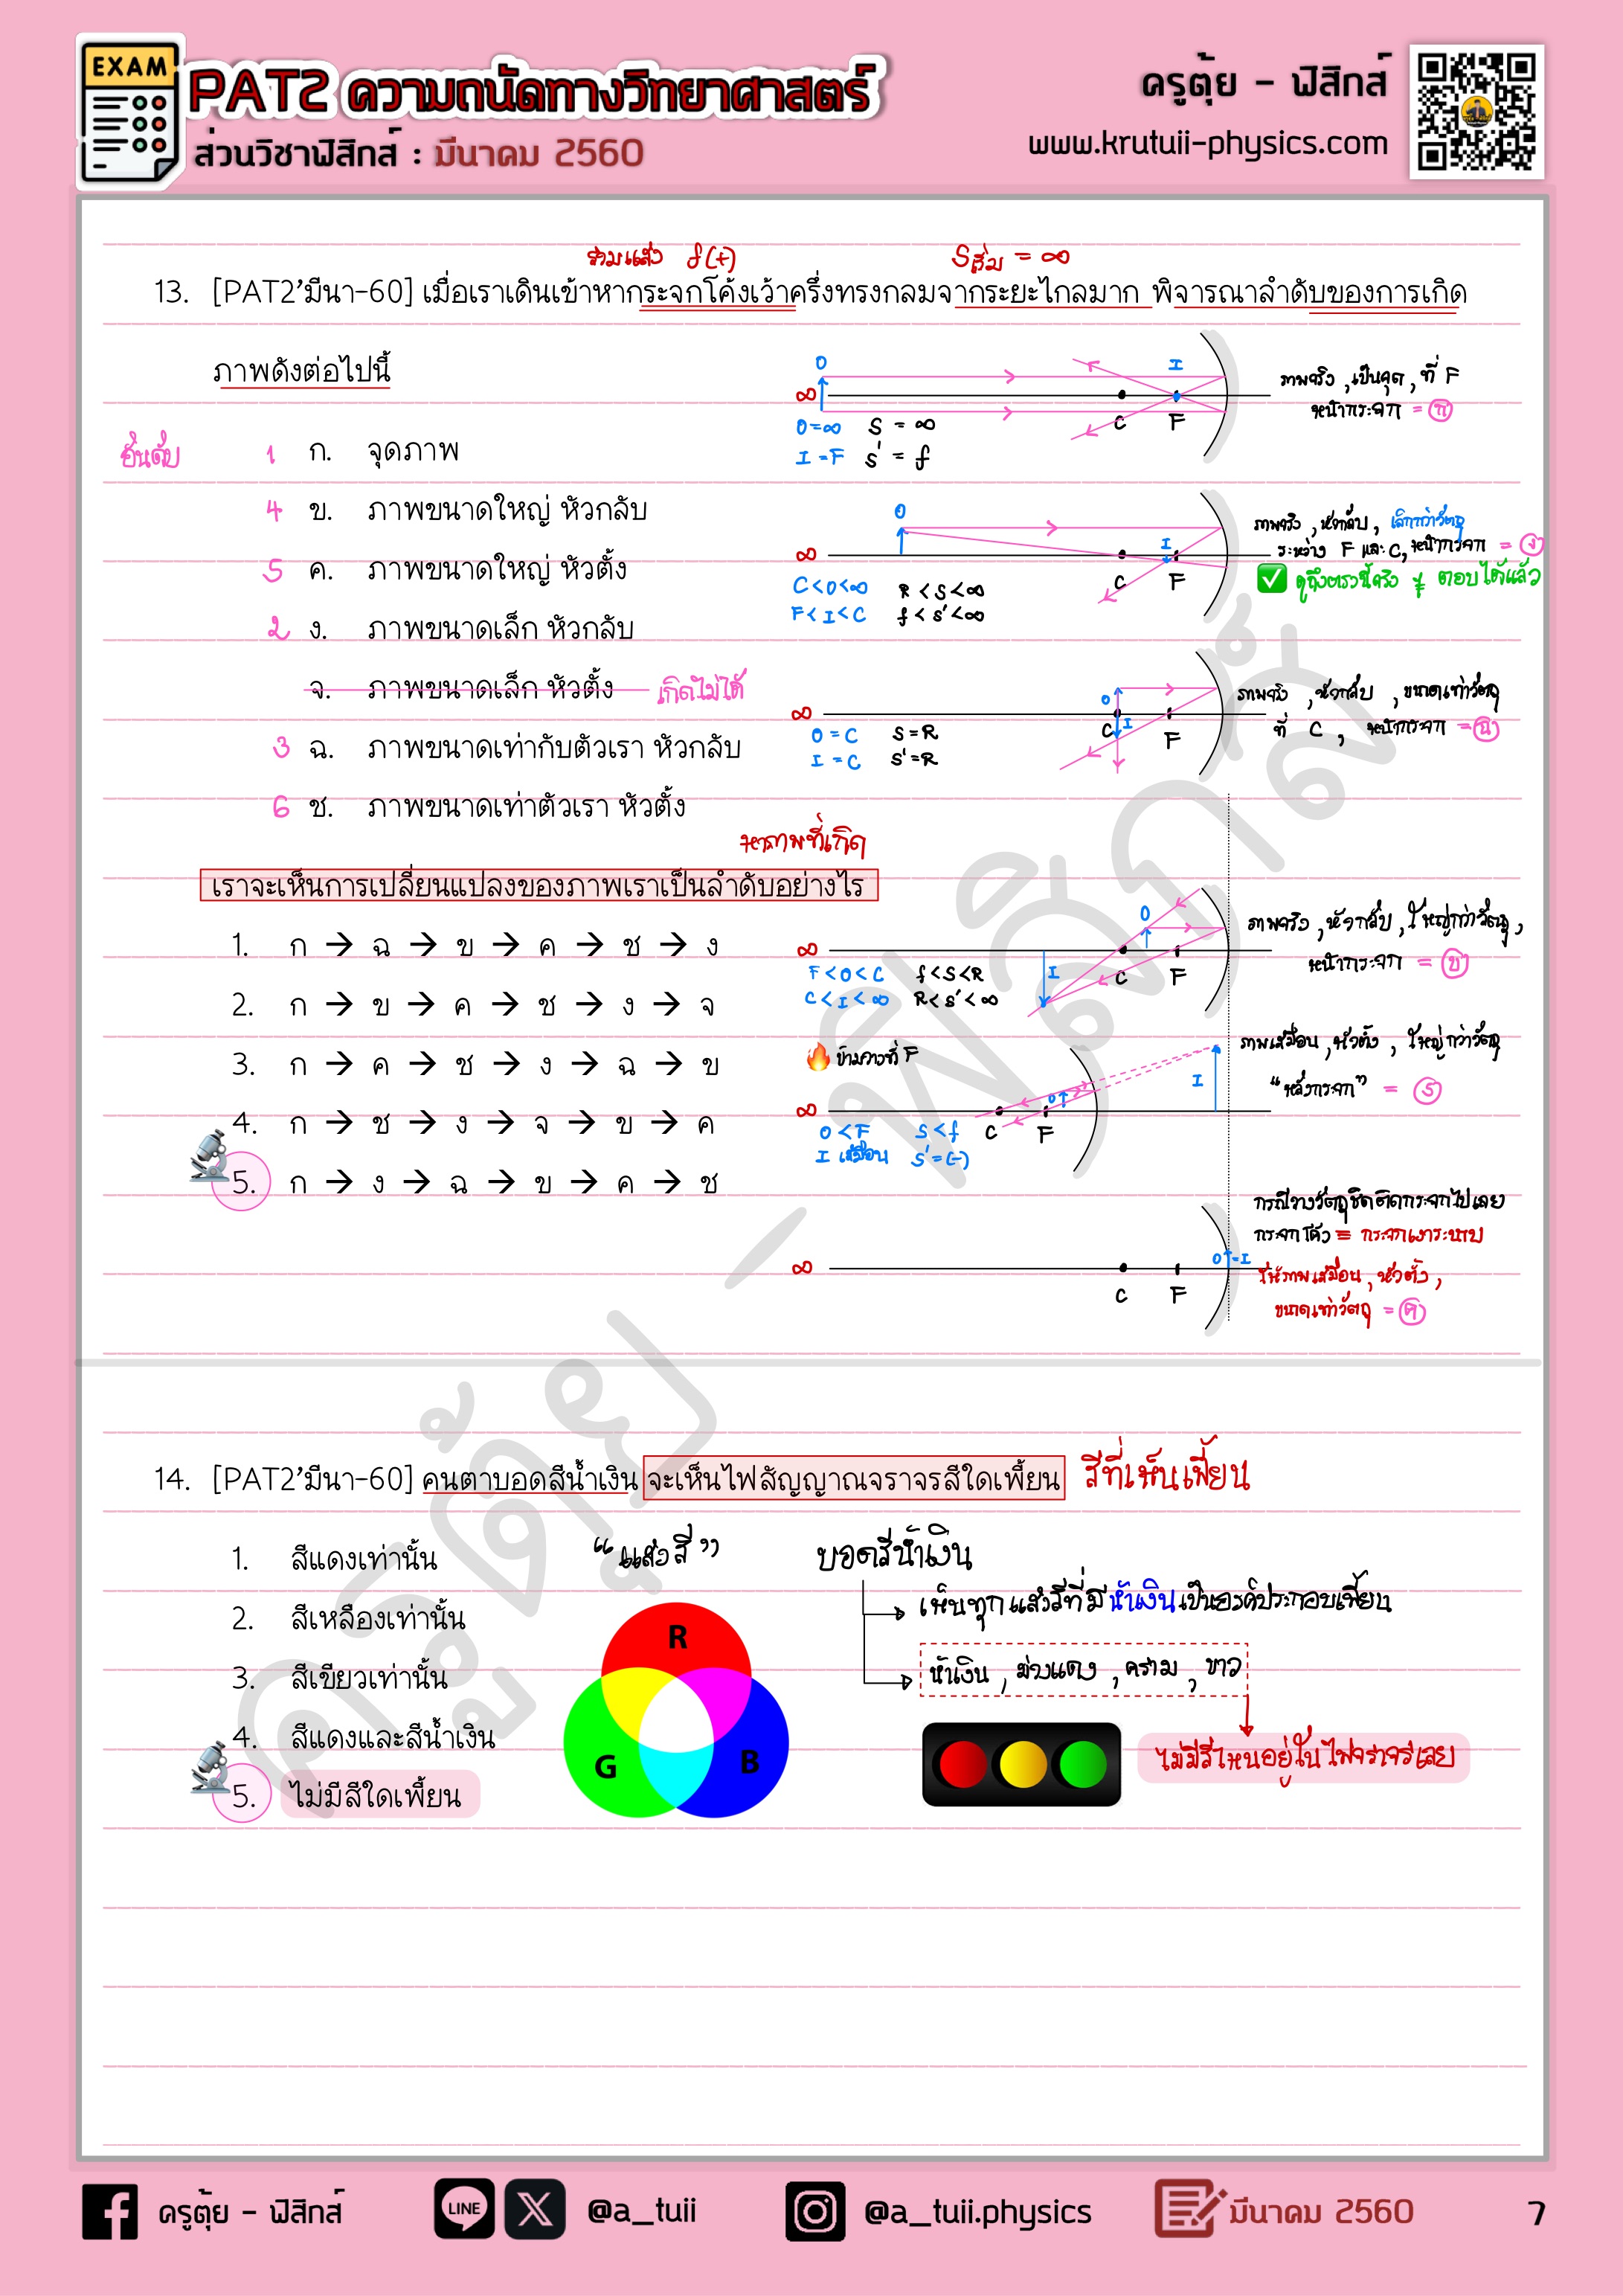 EXAM
PAT2 ความถนัดทางวิทยาศาสตร์
ส่วนวิชาฟิสิกส์ : มีนาคม 2560
ครูตุ้ย - ฟิสิกส์
www.krutuii-physics.com
รวมแสง f(+)
Sเริ่ม = ∞
13. [PAT2'มีนา-60] เมื่อเราเดินเข้าหากระจกโค้งเว้าครึ่งทรงกลมจากระยะไกลมาก พิจารณาลำดับของการเกิด
ภาพดังต่อไปนี้
อันดับ
1 ก. จุดภาพ
4 ข. ภาพขนาดใหญ่ หัวกลับ
5 ค. ภาพขนาดใหญ่ หัวตั้ง
2 ง. ภาพขนาดเล็ก หัวกลับ
จ. ภาพขนาดเล็ก หัวตั้ง เกิดไม่ได้
3 ฉ. ภาพขนาดเท่ากับตัวเรา หัวกลับ
6 ช. ภาพขนาดเท่าตัวเรา หัวตั้ง
หาภาพที่เกิด
เราจะเห็นการเปลี่ยนแปลงของภาพเราเป็นลำดับอย่างไร
1. ก → ฉ → ข → ค → ช → ง
2. ก → ข → ค → ช → ง → จ
3. ก → ค → ช → ง → ฉ → ข
4. ก → ช → ง → จ → ข → ค
5. ก → ง → ฉ → ข → ค → ช
O I
∞ C F
O=∞ S = ∞
I = F S' = f
ภาพจริง , เป็นจุด , ที่ F
หน้ากระจก = ก
O I
∞ C F
C<O<∞ R<S<∞
F<I<C f<S'<∞
ภาพจริง , หัวกลับ , เล็กกว่าวัตถุ
ระหว่าง F และ C, หน้ากระจก = ง
ดูถึงตรงนี้จริง ๆ ตอบได้แล้ว
O I
∞ C F
O = C S=R
I = C S'=R
ภาพจริง , หัวกลับ , ขนาดเท่าวัตถุ
ที่ C , หน้ากระจก = ฉ
O I
∞ C F
F<O<C f<S<R
C<I<∞ R<S'<∞
ภาพจริง , หัวกลับ , ใหญ่กว่าวัตถุ ,
หน้ากระจก = ข
ข้ามวางที่ F
O I
∞ C F
O<F S<f
I เสมือน S'=(-)
ภาพเสมือน , หัวตั้ง , ใหญ่กว่าวัตถุ
"หลังกระจก" = 5
∞ C F
O = I
กรณีวางวัตถุชิดติดกระจกไปเลย
กระจกโค้ง = กระจกเงาระนาบ
ให้ภาพเสมือน , หัวตั้ง ,
ขนาดเท่าวัตถุ = ค
14. [PAT2'มีนา-60] คนตาบอดสีน้ำเงิน จะเห็นไฟสัญญาณจราจรสีใดเพี้ยน สีที่เห็นเพี้ยน
1. สีแดงเท่านั้น
2. สีเหลืองเท่านั้น
3. สีเขียวเท่านั้น
4. สีแดงและสีน้ำเงิน
5. ไม่มีสีใดเพี้ยน
"แสงสี"
R
G
B
บอดสีน้ำเงิน
เห็นทุกแสงสีที่มีน้ำเงินเป็นองค์ประกอบเพี้ยน
น้ำเงิน , ม่วงแดง , คราม , ขาว
ไม่มีสีไหนอยู่ในไฟจราจรเลย
ครูตุ้ย - ฟิสิกส์
ครูตุ้ย - ฟิสิกส์
LINE
@a_tuii
@a_tuii.physics
มีนาคม 2560
7